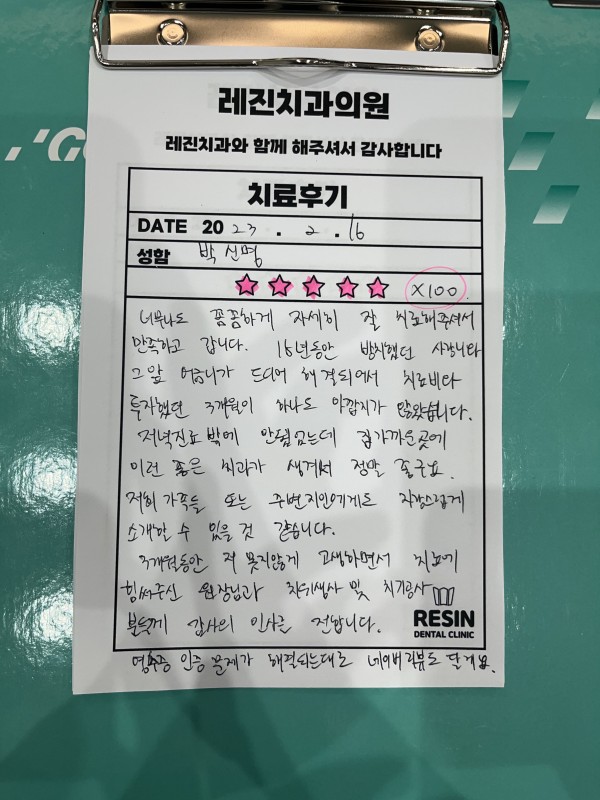 레진치과의원
레진치과와 함께 해주셔서 감사합니다
치료후기
DATE 2023 . 2 . 16
성함 박신명
X100
너무나도 꼼꼼하게 자세히 잘 치료해주셔서
만족하고 갑니다. 16년동안 방치했던 사랑니와
그 앞 어금니가 드디어 해결되어서 치료비와
투자했던 3개월이 하나도 아깝지가 않았습니다.
저녁진료 밖에 안됐었는데 집가까운곳에
이런 좋은 치과가 생겨서 정말 좋구요.
저희 가족들 또는 주변지인에게도 자랑스럽게
소개할 수 있을 것 같습니다.
3개월동안 저 못지않게 고생하면서 치료에
힘써주신 원장님과 치위생사 및 치기공사
분들께 감사의 인사를 전합니다.
RESIN
DENTAL CLINIC
영수증 인증 문제가 해결되는대로 네이버 리뷰도 달게요.